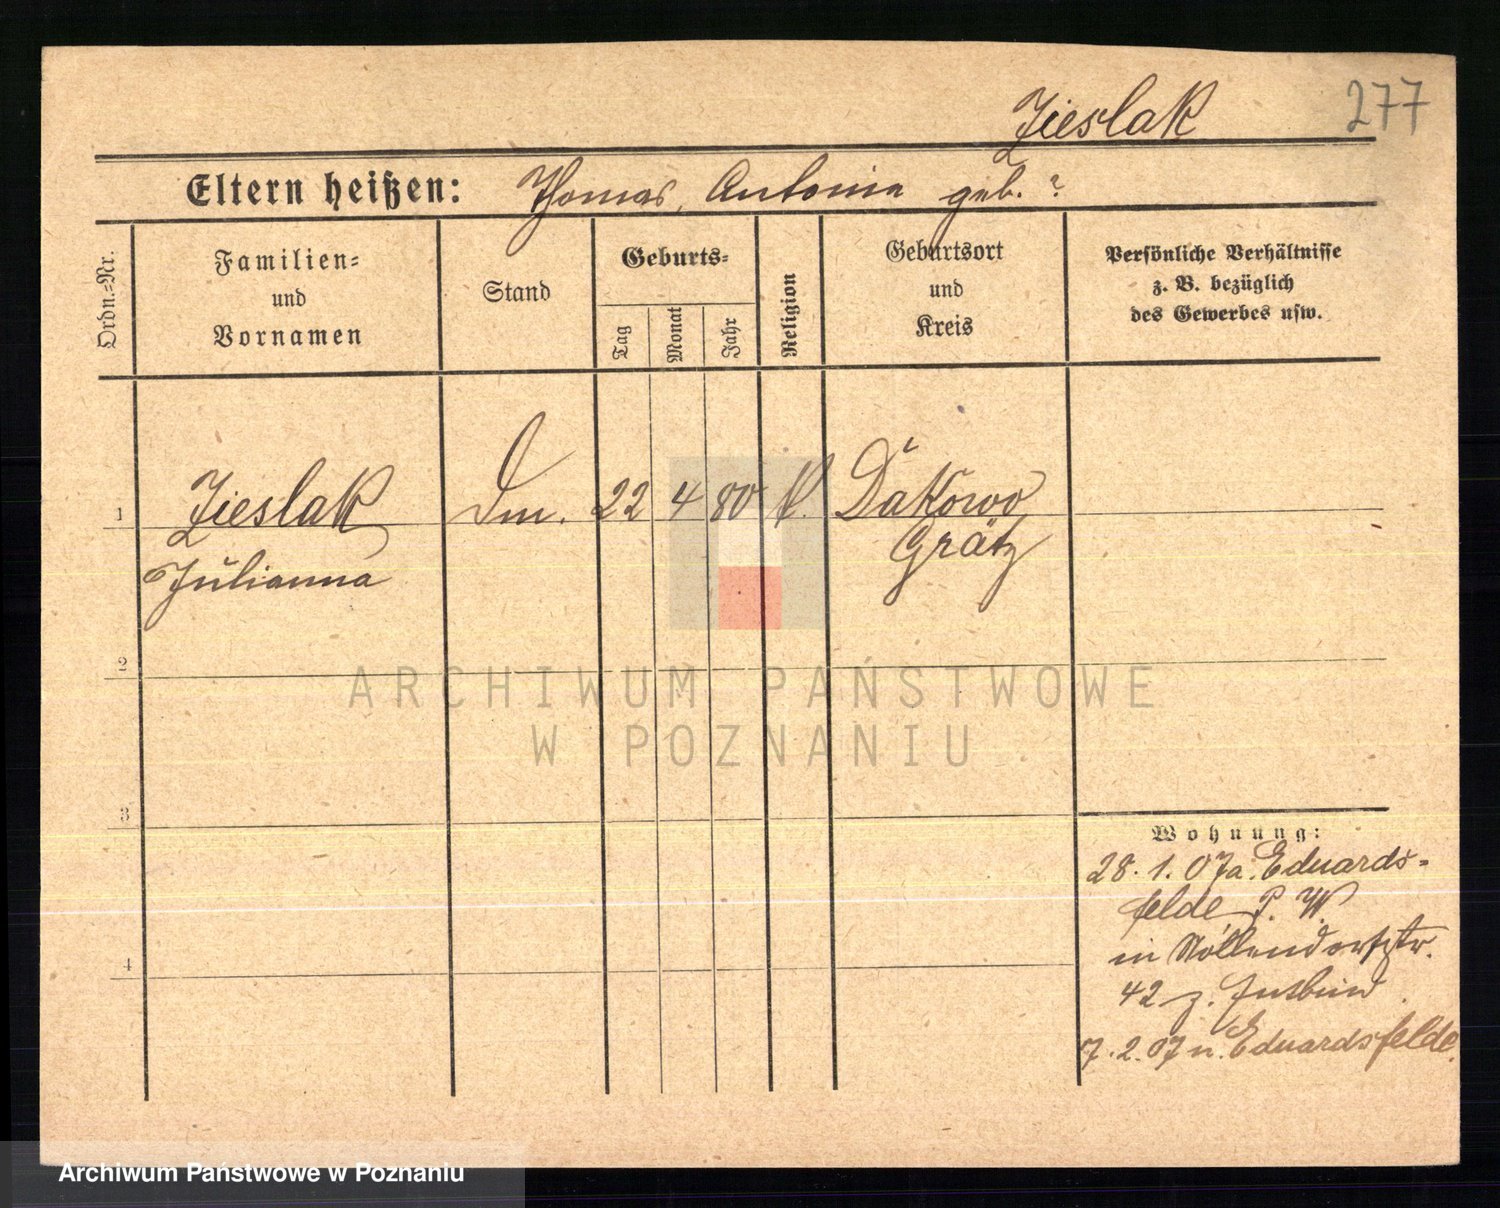 Zieslak 277
Eltern heißen: Thomas, Antonia geb. ?
Ordn.=Nr.
Familien=
und
Vornamen
Stand
Geburts=
Tag
Monat
Jahr
Religion
Geburtsort
und
Kreis
Persönliche Verhältnisse
z. B. bezüglich
des Gewerbes usw.
1 Zieslak Dm. 22 4 80 k. Dakowo
Julianna Grätz
2
3
4
Wohnung:
28. 1. 07 a. Eduards-
felde P. W.
in Nöllendorfstr.
42 z.
7. 2. 07 n. Eduardsfelde.
ARCHIWUM PAŃSTWOWE
W POZNANIU
Archiwum Państwowe w Poznaniu